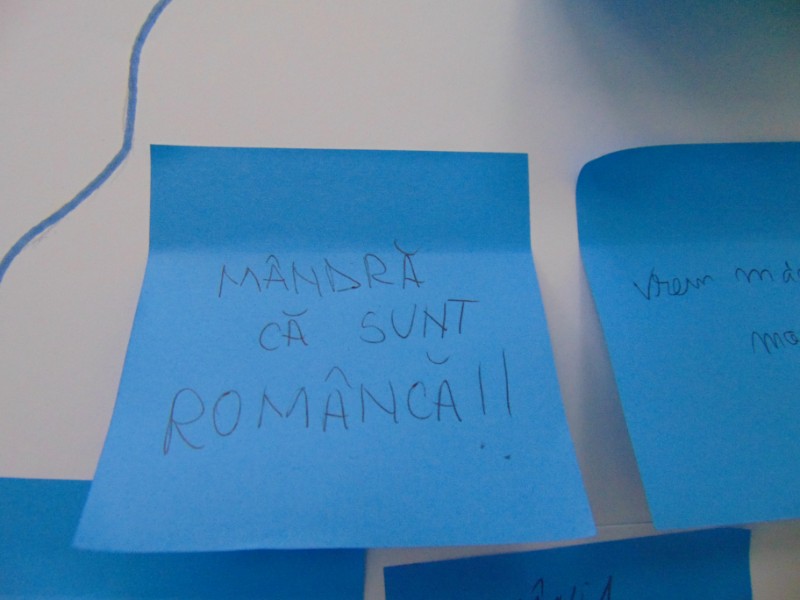 MÂNDRĂ
CĂ SUNT
ROMÂNCĂ!!
Vrem